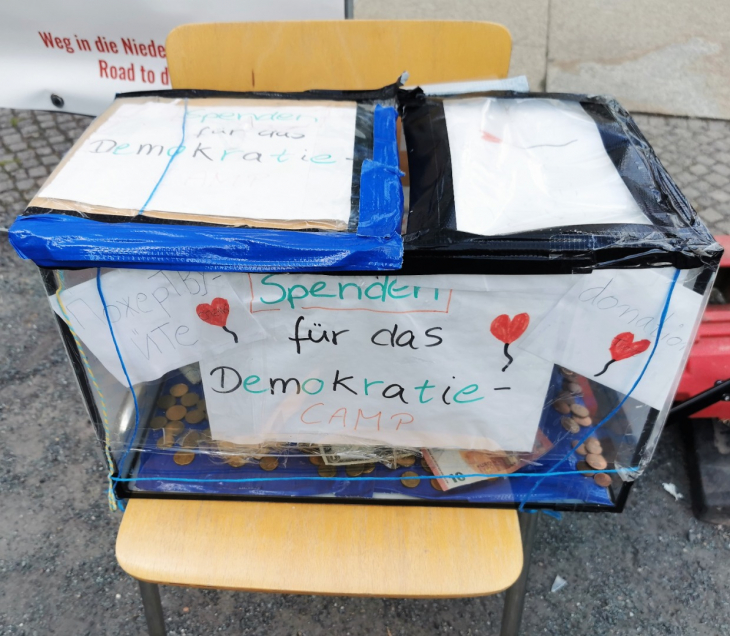 Weg in die Niede
Road to d
Spenden
für das
Demokratie-
Пожертву-
йте
Spenden
für das
Demokratie-
CAMP
donatio
10